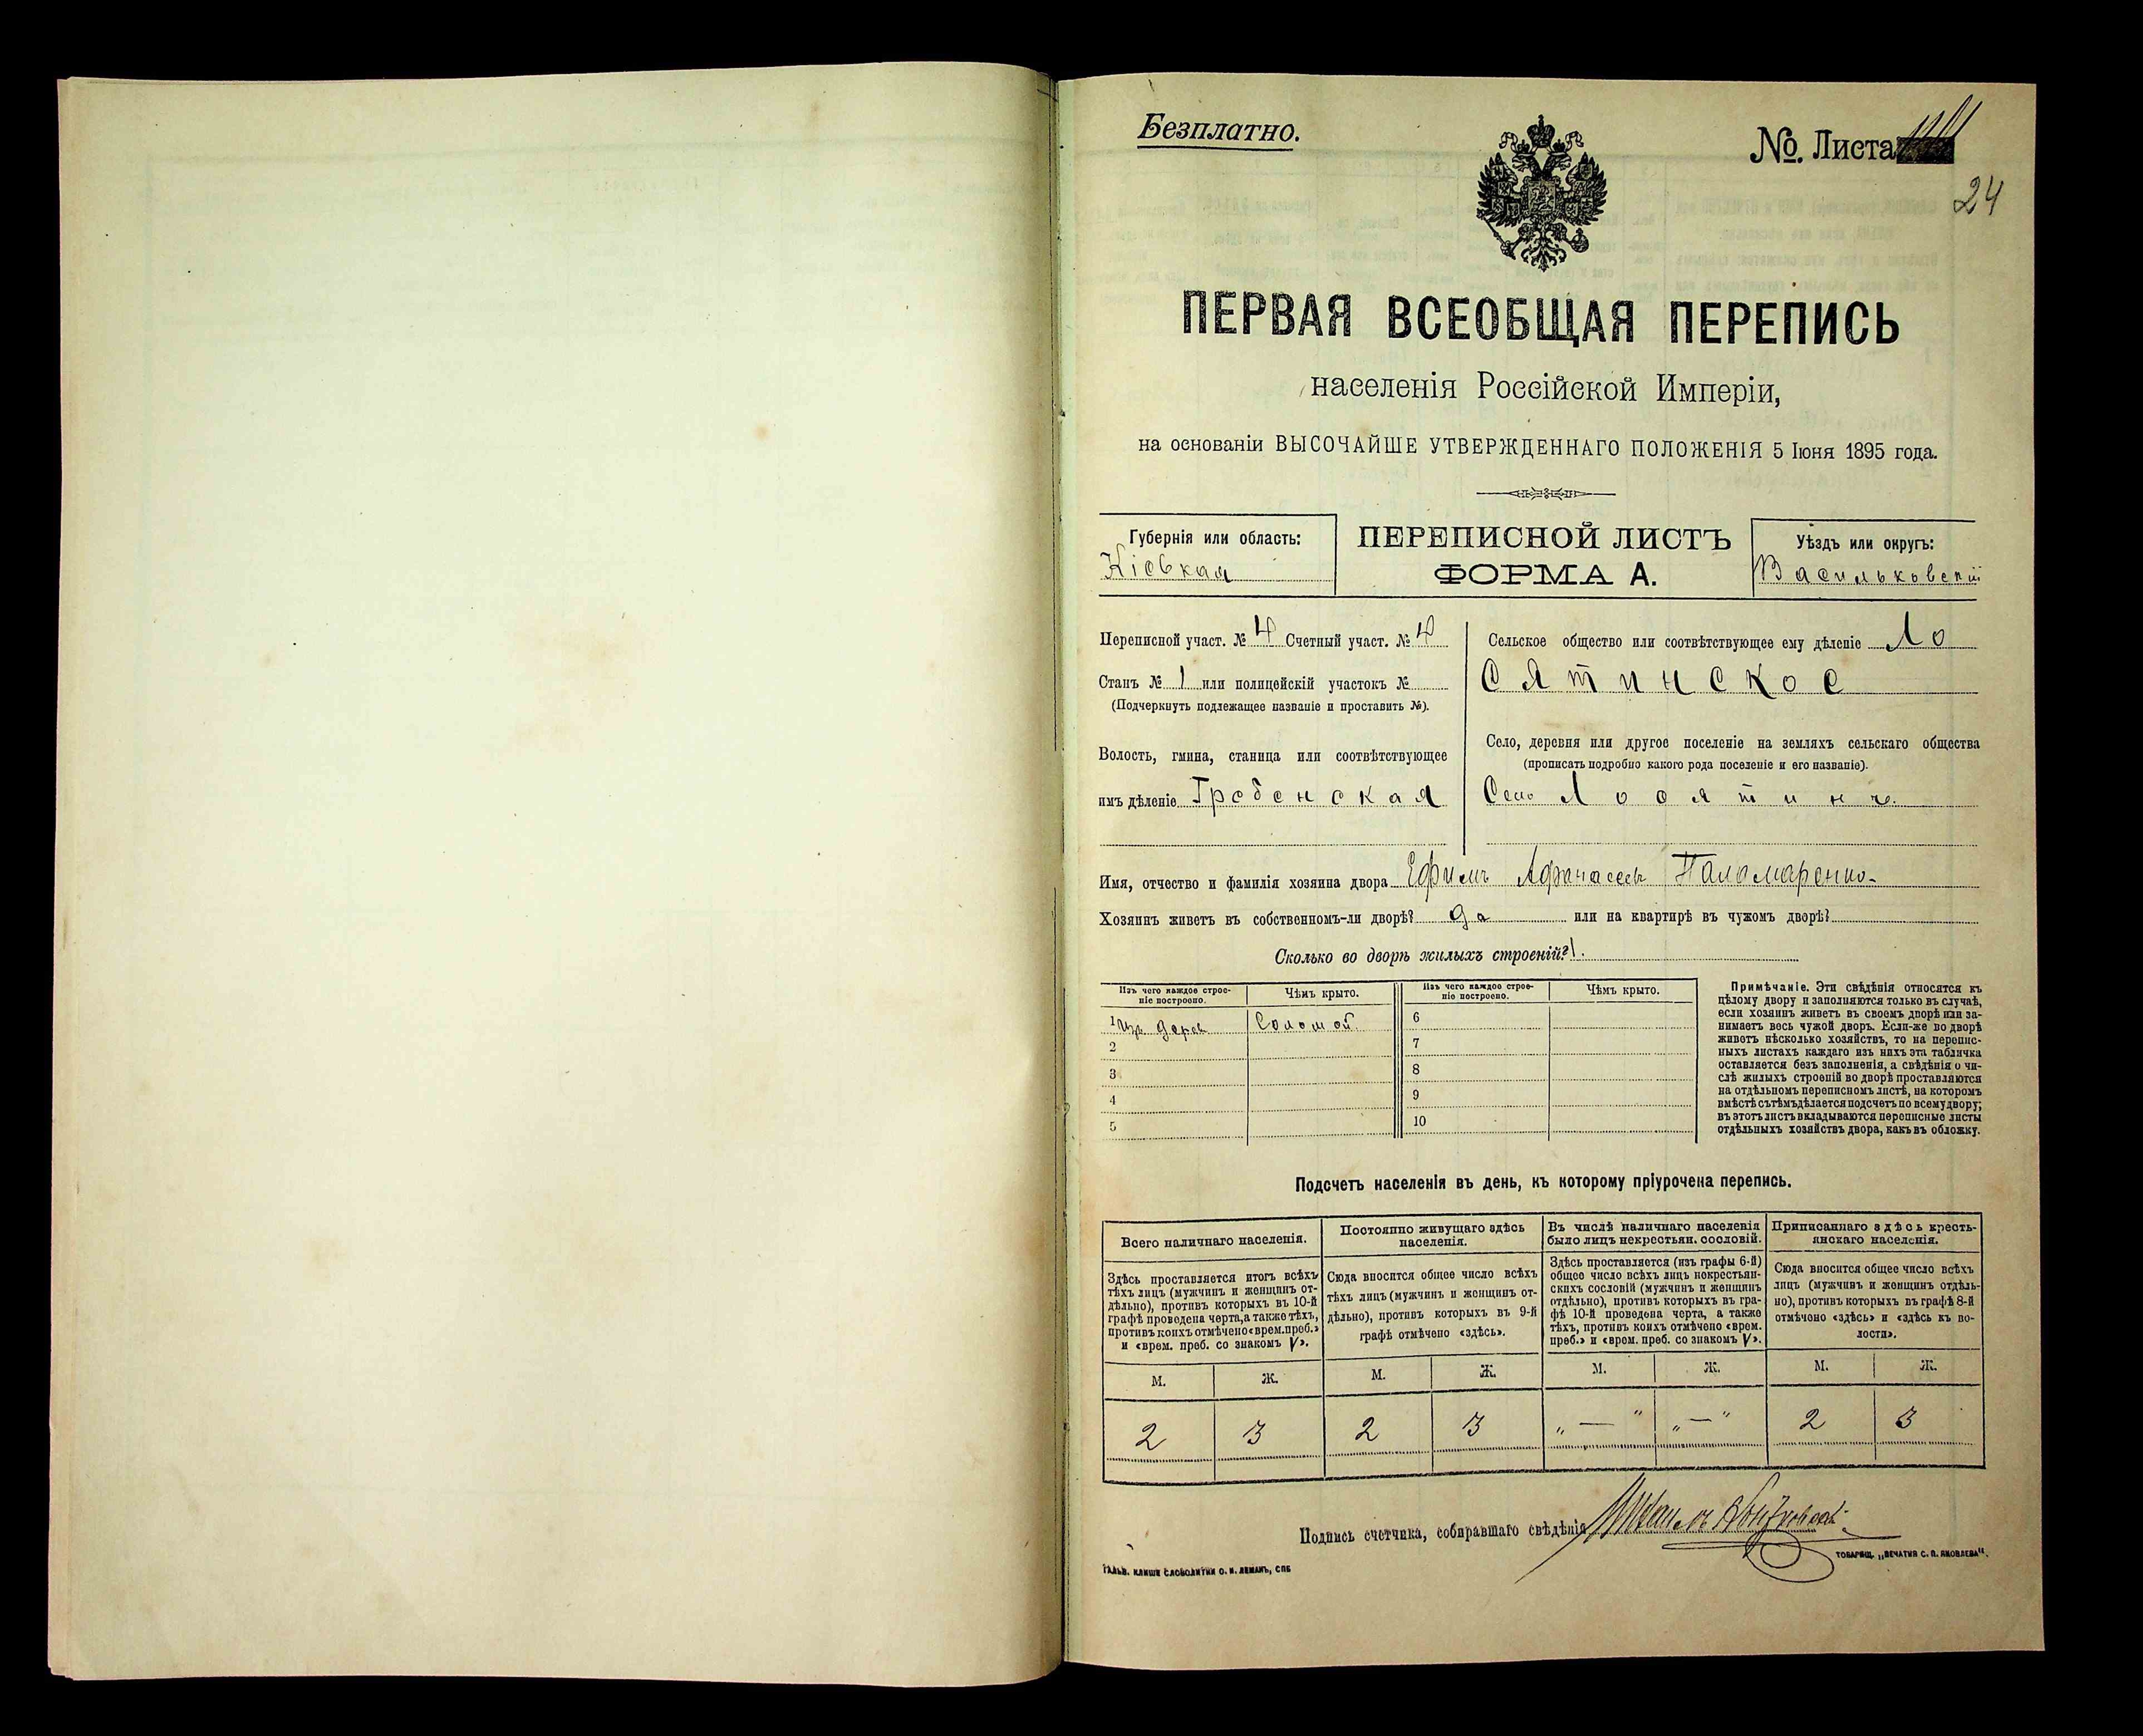 Безплатно.
№. Листа
24
ПЕРВАЯ ВСЕОБЩАЯ ПЕРЕПИСЬ
населенія Россійской Имперіи,
на основаніи ВЫСОЧАЙШЕ УТВЕРЖДЕННАГО ПОЛОЖЕНІЯ 5 Іюня 1895 года.
Губернія или область:
Кіевкая
ПЕРЕПИСНОЙ ЛИСТЪ
ФОРМА А.
Уѣздъ или округъ:
Васильковскій
Переписной участ. № 4 Счетный участ. № 4
Станъ № 1 или полицейскій участокъ №
(Подчеркнуть подлежащее названіе и проставить №).
Волость, гмина, станица или соотвѣтствующее
имъ дѣленіе Гребенская
Сельское общество или соотвѣтствующее ему дѣленіе Ло
сятинское
Село, деревня или другое поселеніе на земляхъ сельскаго общества
(прописать подробно какого рода поселеніе и его названіе).
Село Лосятинъ
Имя, отчество и фамилія хозяина двора Ефимъ Афанасьевъ Паламаренко
Хозяинъ живетъ въ собственномъ-ли дворѣ? да или на квартирѣ въ чужомъ дворѣ?
Сколько во дворѣ жилыхъ строеній? 1.
Изъ чего каждое строе-
ніе построено.
Чѣмъ крыто.
1 Изъ дерев Соломой
2
3
4
5
Изъ чего каждое строе-
ніе построено.
Чѣмъ крыто.
6
7
8
9
10
Примѣчаніе. Эти свѣдѣнія относятся къ
цѣлому двору и заполняются только въ случаѣ,
если хозяинъ живетъ въ своемъ дворѣ или за-
нимаетъ весь чужой дворъ. Если-же во дворѣ
живетъ нѣсколько хозяйствъ, то на перепис-
ныхъ листахъ каждаго изъ нихъ эта табличка
оставляется безъ заполненія, а свѣдѣнія о чи-
слѣ жилыхъ строеній во дворѣ проставляются
на отдѣльномъ переписномъ листѣ, на которомъ
вмѣстѣ съ тѣмъ дѣлается подсчетъ по всему двору;
въ этотъ листъ вкладываются переписные листы
отдѣльныхъ хозяйствъ двора, какъ въ обложку.
Подсчетъ населенія въ день, къ которому пріурочена перепись.
Всего наличнаго населенія.
Здѣсь проставляется итогъ всѣхъ
тѣхъ лицъ (мужчинъ и женщинъ от-
дѣльно), противъ которыхъ въ 10-й
графѣ проведена черта, а также тѣхъ,
противъ коихъ отмѣчено «врем. преб.»
и «врем. преб. со знакомъ V».
М. Ж.
2 3
Постоянно живущаго здѣсь
населенія.
Сюда вносится общее число всѣхъ
тѣхъ лицъ (мужчинъ и женщинъ от-
дѣльно), противъ которыхъ въ 9-й
графѣ отмѣчено «здѣсь».
М. Ж.
2 3
Въ числѣ наличнаго населенія
было лицъ некрестьян. сословій.
Здѣсь проставляется (изъ графы 6-й)
общее число всѣхъ лицъ некрестьян-
скихъ сословій (мужчинъ и женщинъ
отдѣльно), противъ которыхъ въ гра-
фѣ 10-й проведена черта, а также
тѣхъ, противъ коихъ отмѣчено «врем.
преб.» и «врем. преб. со знакомъ V».
М. Ж.
„ — “ „ — “
Приписаннаго здѣсь кресть-
янскаго населенія.
Сюда вносится общее число всѣхъ
лицъ (мужчинъ и женщинъ отдѣль-
но), противъ которыхъ въ графѣ 8-й
отмѣчено «здѣсь» и «здѣсь къ во-
лости».
М. Ж.
2 3
Подпись счетчика, собиравшаго свѣдѣнія
ГАЛЬВ. КЛИШЕ СЛОВОЛИТНИ О. И. ЛЕМАНЪ, СПБ
ТОВАРИЩ. „ПЕЧАТНЯ С. П. ЯКОВЛЕВА“.